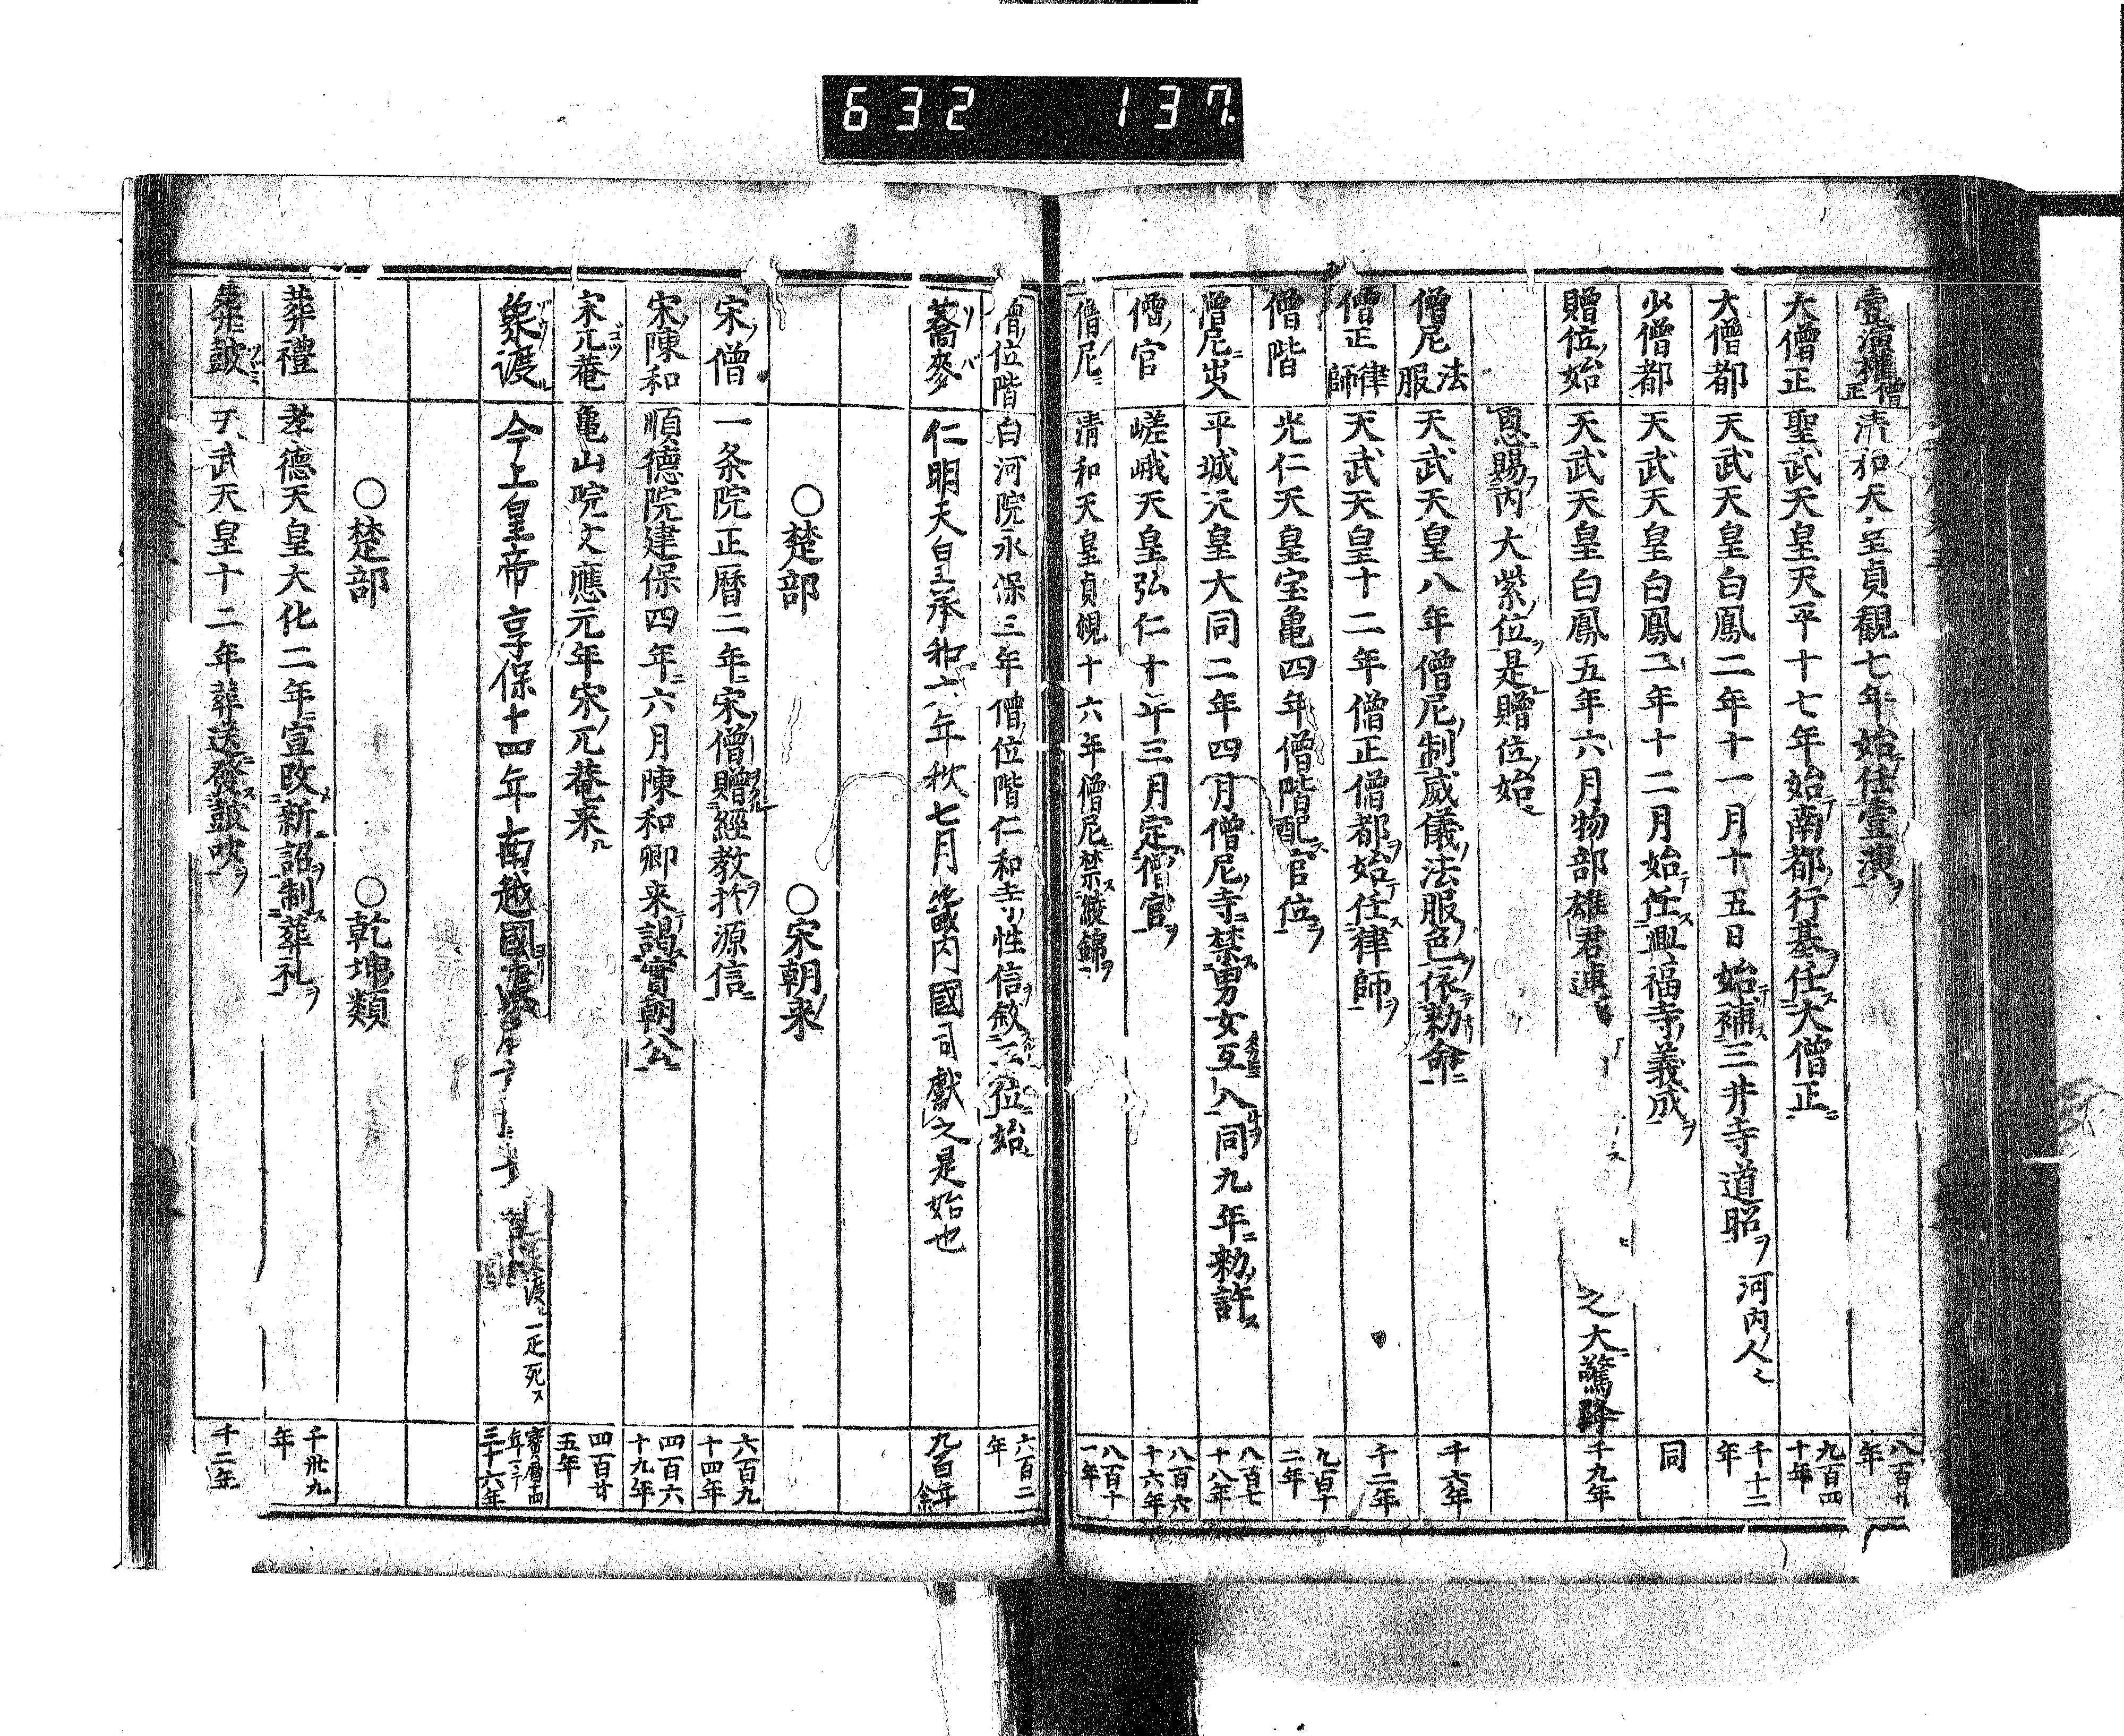 632 137
壹演權僧正 清和天皇貞観七年始任壹演ヲ 八百廿年
大僧正 聖武天皇天平十七年始テ南都ノ行基ヲ任ス大僧正ニ 九百四十年
大僧都 天武天皇白鳳二年十一月十五日始テ補ス三井寺道昭ヲ 河内ノ人ニ 千十二年
少僧都 天武天皇白鳳二年十二月始テ任ス興福寺ノ義成ヲ 同
贈位ノ始 天武天皇白鳳五年六月物部雄君連 之大驚降 千九年
恩賜フ内大紫ノ位ヲ是贈位ノ始ニ
僧尼法服 天武天皇八年僧尼ノ制威儀ノ法服ノ色ヲ依テ勅命ニ 千六年
僧正律師 天武天皇十二年僧正僧都ヲ始テ任ス律師ヲ 千二年
僧階 光仁天皇宝亀四年僧階配ス官位ヲ 九百十二年
僧尼出入 平城天皇大同二年四月僧尼ノ寺ニ禁ス男女互ニ入ヿヲ同九年ニ勅許ス 八百七十八年
僧ノ官 嵯峨天皇弘仁十年三月定ム僧官ヲ 八百六十六年
僧尼ノ 清和天皇貞観十六年僧尼ニ禁ス綾錦ヲ 八百十一年
僧ノ位階 白河院永保三年僧ノ位階仁和寺ノ性信ヲ叙スル二位ニ始ニ 六百二年
蕎麥 ソバ 仁明天皇承和六年秋七月畿内國司献之是始也 九百年余
○楚部 ○宋朝ノ来
宋ノ僧 一条院正暦二年ニ宋ノ僧贈ル經教ヲ於源信ニ 六百九十四年
宋ノ陳和 順德院建保四年ニ六月陳和卿来テ謁實朝公ニ 四百六十九年
宋ノ兀菴 ゴツ 亀山院文應元年宋ノ兀菴来ル 四百廿五年
象渡ル ゾウ 今上皇帝享保十四年南越國ヨリ 渡ル一疋死ス 寶暦十四年マテ三十六年
○楚部 ○乾坤類
葬禮 孝德天皇大化二年ニ宣改メ新ニ詔ヲ制ス葬礼ヲ 千卅九年
葬ニ鼓 天武天皇十二年葬送ニ發ス鼓吹ヲ 千二年